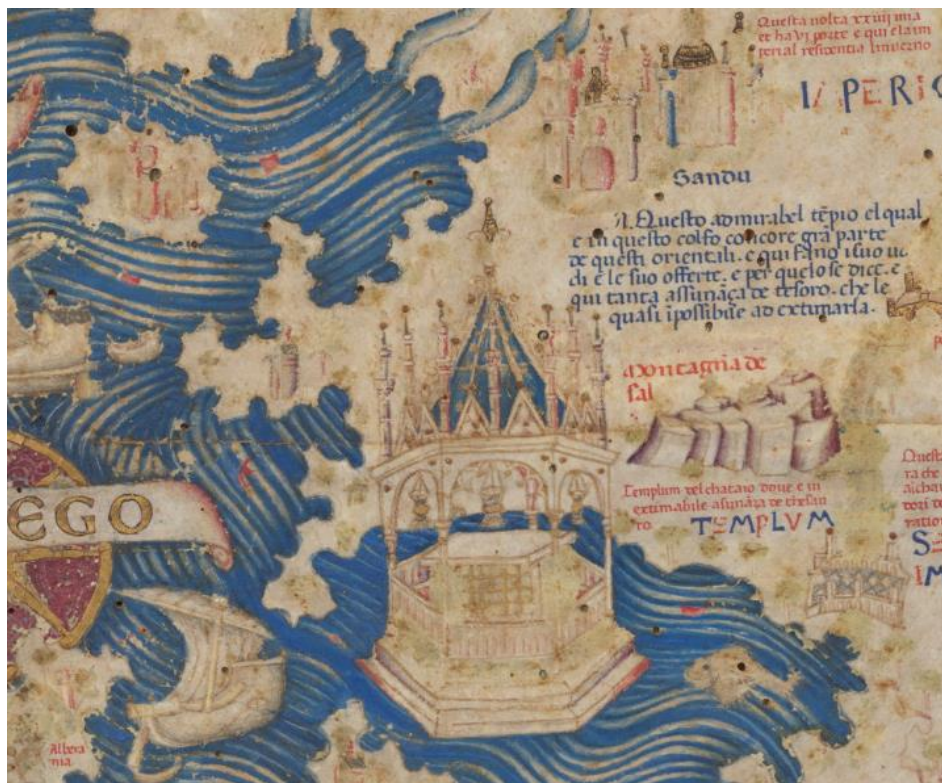 Questa uolta xxiiii mia
et ha vi porte e qui e la im
perial residentia linuerno
IMPERIO
Sandu
Questo admirabel tẽpio el qual
e in questo colfo concore grã parte
de questi orientali. e qui fano i suo uo
di e le suo offerte. e per quelo se dice. e
qui tanta assunãça de tesoro. che le
quasi ipossibile ad extimarla.
Montagna de
sal
Templum del chataio doue e in
extimabile asunãza de thesau
ro
TEMPLVM
EGO
Albera
nia